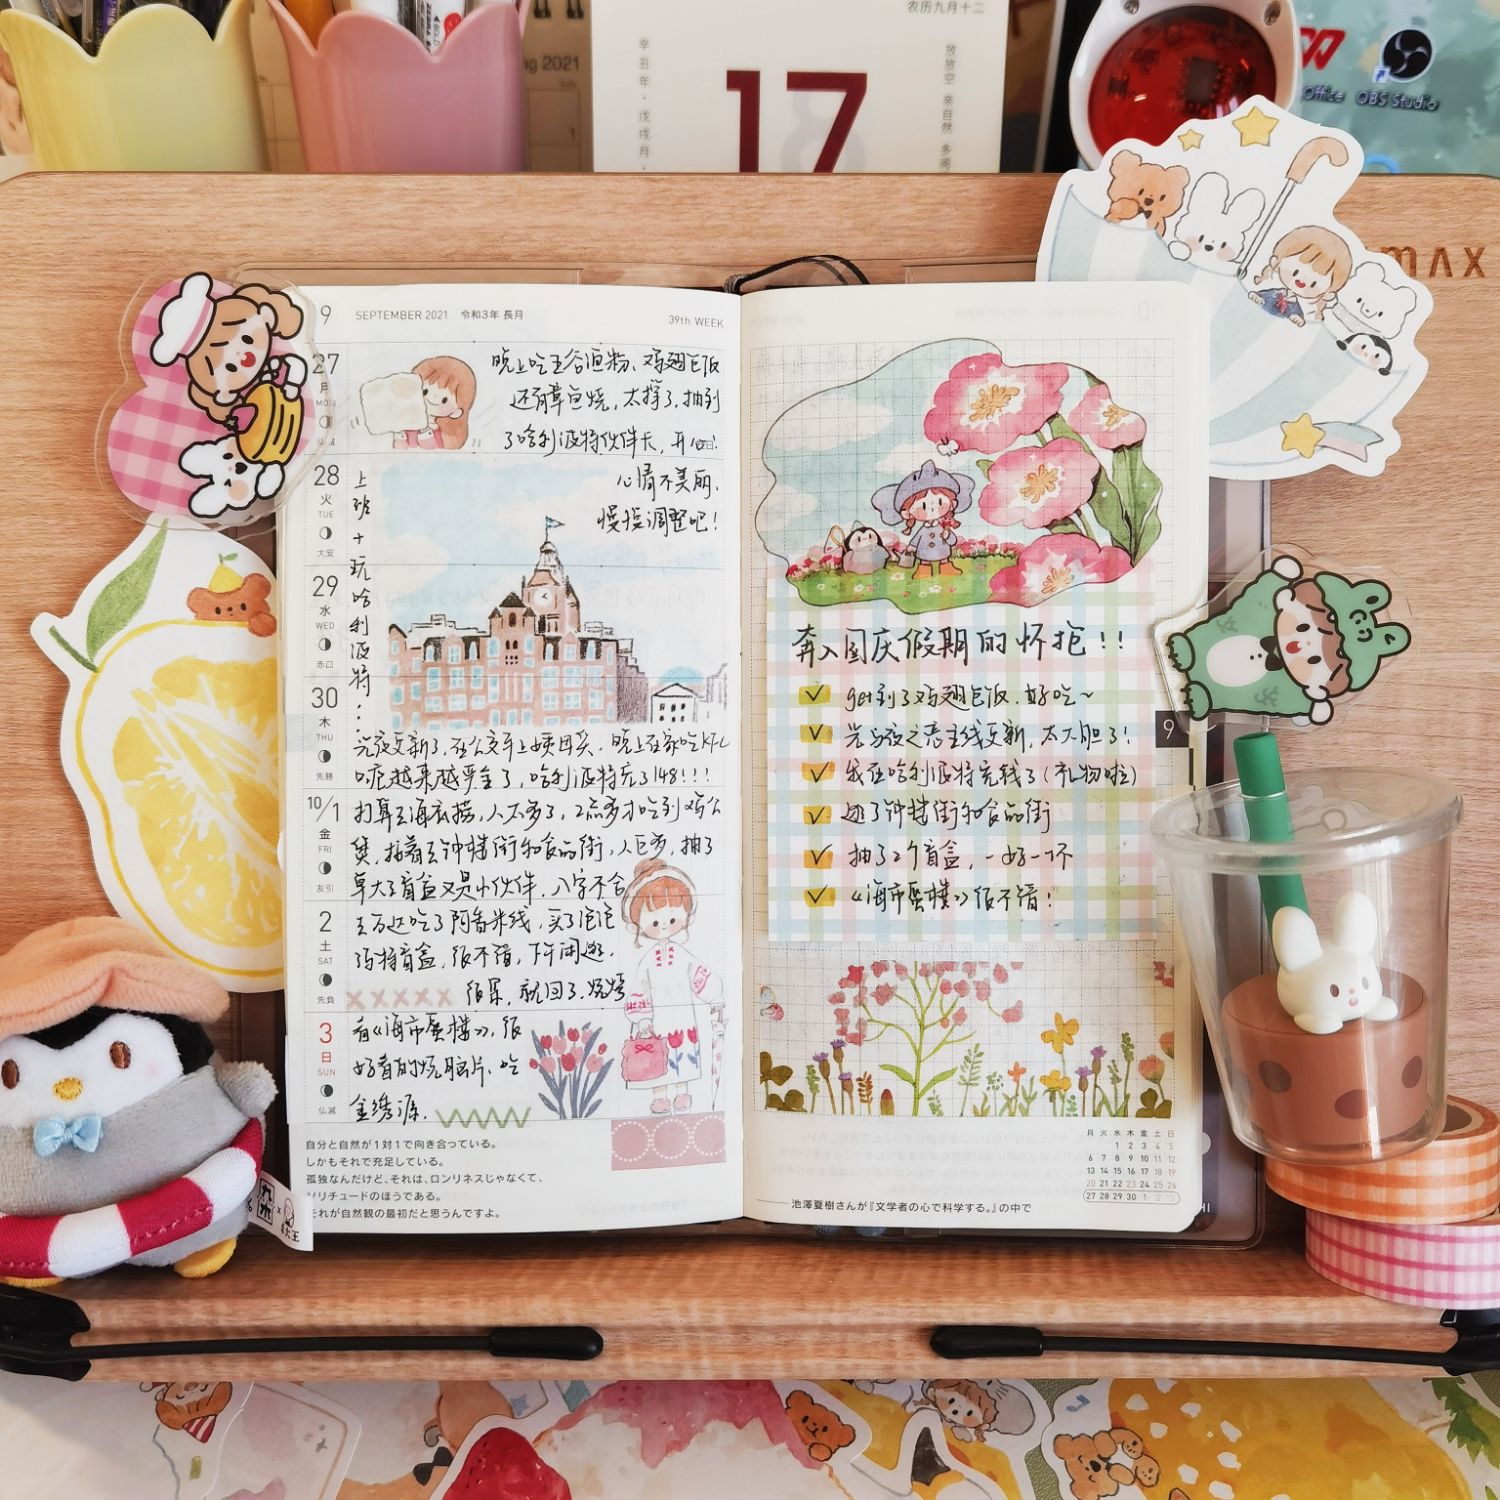 农历九月十二
辛丑年·戊戌月·
放放空 亲自然 多阅
17
2021
Office
OBS Studio
MAX
9
SEPTEMBER 2021 令和3年 長月
39th WEEK
27
月
MON
仏滅
晚上吃五谷渔粉、鸡翅包饭
还有章鱼烧,太撑了,抽到
了哈利波特伙伴卡,开心
28
火
TUE
大安
心情不美丽,
慢慢调整吧!
上班+玩哈利波特!
29
水
WED
赤口
30
木
THU
先勝
光夜更新了,在公交车上
晚上在家吃KFC
越来越
哈利波特充了148!!!
10/1
金
FRI
友引
打算去海底捞,人太多了,2点多才吃到鸡公
煲,接着去钟楼街和食品街,人巨多,抽了
盲盒又是小伙伴,八字不合
2
土
SAT
先負
去万达吃了阿香米线,买了泡泡
玛特盲盒,很不错,下午闲逛,
很累,就回了,
3
日
SUN
仏滅
看《海市蜃楼》,很
好看的烧脑片,吃
金绣源.
自分と自然が1対1で向き合っている。
しかもそれで充足している。
孤独なんだけど、それは、ロンリネスじゃなくて、
ソリチュードのほうである。
それが自然観の最初だと思うんですよ。
奔入国庆假期的怀抱!!
get到了鸡翅包饭,好吃~
光与夜之恋主线更新,太大胆了!
我在哈利波特充钱了(礼物啦)
逛了钟楼街和食品街
抽了2个盲盒,一好一坏
《海市蜃楼》很不错!
9
月 火 水 木 金 土 日
1 2 3 4 5
6 7 8 9 10 11 12
13 14 15 16 17 18 19
20 21 22 23 24 25 26
27 28 29 30 1 2 3
池澤夏樹さんが『文学者の心で科学する。』の中で